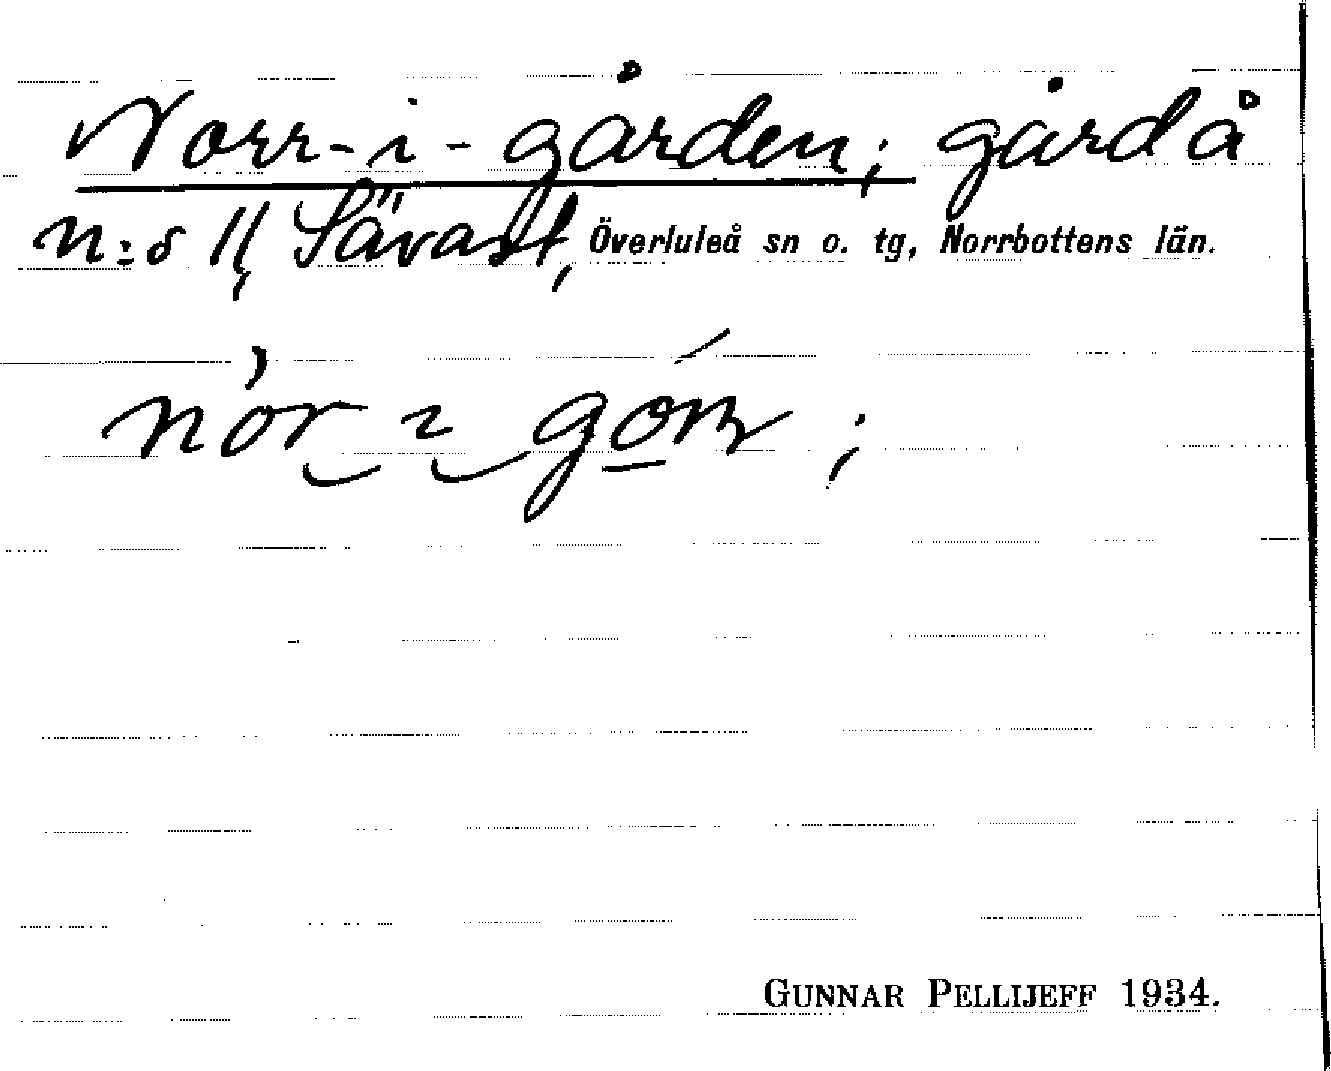 Norr-i-gården; gård å
n:o 11, Sävast, Överluleå sn o. tg, Norrbottens län.
GUNNAR PELLIJEFF 1934.